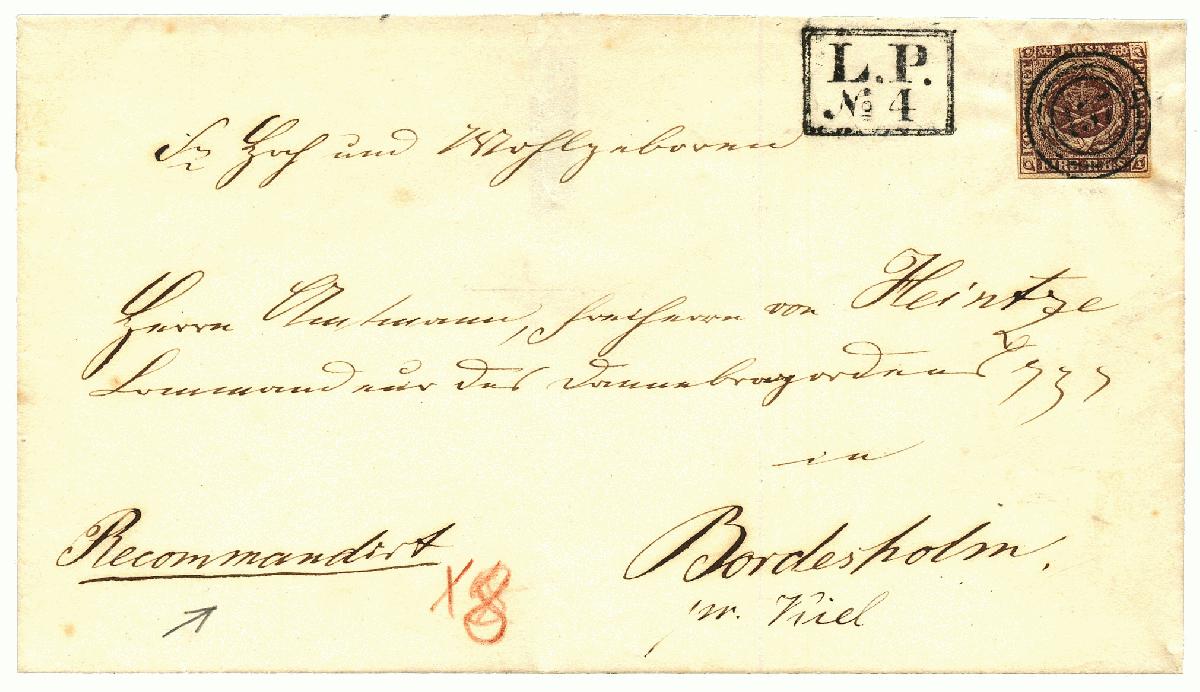 L.P.
№ 4
Hoch und Wohlgeboren
Herrn Amtmann, Freiherrn von Heintze
Commandeur des Dannebrogordens
in
Recommandirt
Bordesholm.
pr. Kiel
x 8
POST